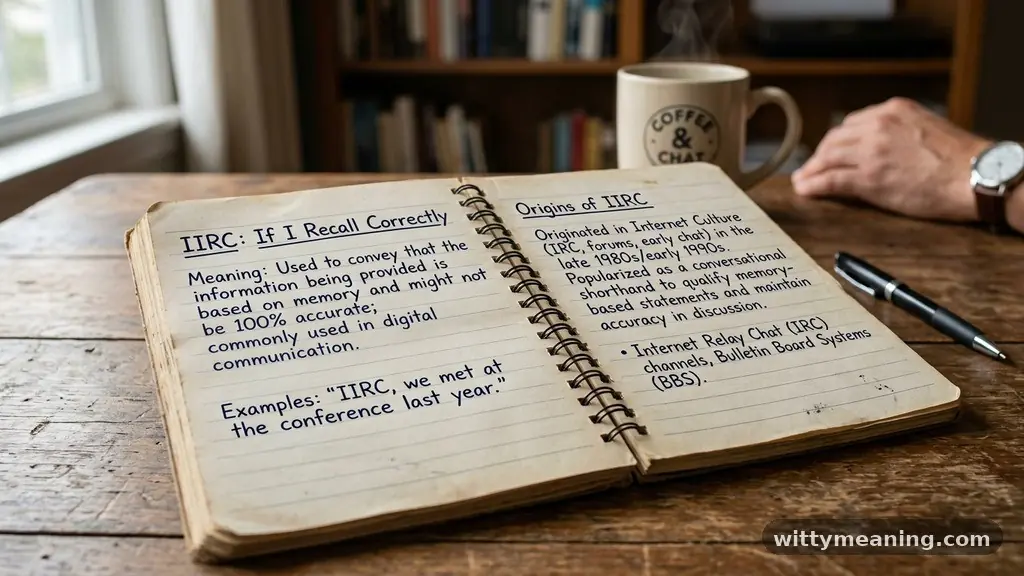 IIRC: If I Recall Correctly
Meaning: Used to convey that the
information being provided is
based on memory and might not
be 100% accurate;
commonly used in digital
communication.
Examples: "IIRC, we met at
the conference last year."
Origins of IIRC
Originated in Internet Culture
(IRC, forums, early chat) in the
late 1980s/early 1990s.
Popularized as a conversational
shorthand to qualify memory-
based statements and maintain
accuracy in discussion.
• Internet Relay Chat (IRC)
channels, Bulletin Board Systems
(BBS).
COFFEE
&
CHAT
wittymeaning.com